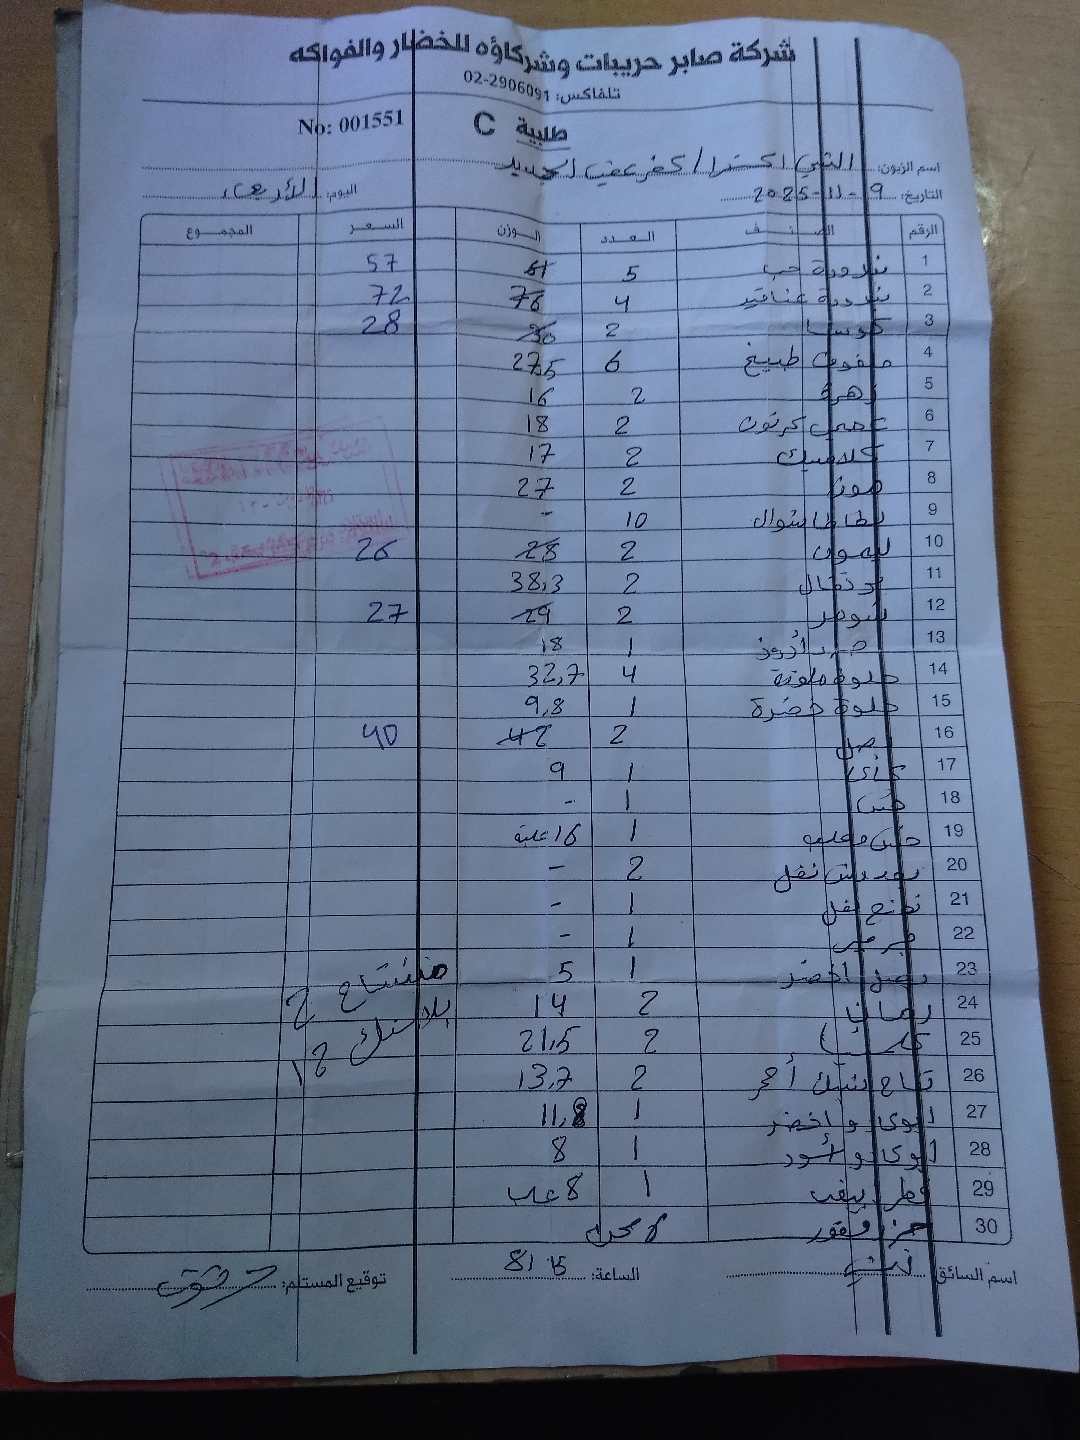 شركة صابر حريبات وشركاؤه للخضار والفواكه
تلفاكس: 02-2906091
طلبية C No: 001551
اسم الزبون: الشني اكسترا / كفر عقب الجديد
التاريخ: 9-11-2025 اليوم: الأربعاء
الرقم الصنف العدد الوزن السعر المجموع
1 بندورة حب 5 61 57
2 بندورة عناقيد 4 76 72
3 كوسا 2 30 28
4 ملفوف طبيخ 6 27,5
5 زهرة 2 16
6 كرتون 2 18
7 كلاسيك 2 17
8 موز 2 27
9 بطاطا شوال 10 -
10 ليمون 2 28 26
11 برتقال 2 38,3
12 شومر 2 29 27
13 1 18
14 حلوة ملونة 4 32,7
15 حلوة خضرة 1 9,8
16 بصل 2 42 40
17 1 9
18 خس 1 -
19 خس 1 16 علبة
20 بقدونس نفل 2 -
21 نعنع نفل 1 -
22 جرجير 1 -
23 بصل اخضر 1 5
24 رمان 2 14
25 2 21,5
26 تفاح أحمر 2 13,7
27 افوكادو اخضر 1 11,8
28 افوكادو أسود 1 8
29 فطر 1 8 علب
30
مشتاح 2
بلاستك 12
اسم السائق الساعة: 8:15 توقيع المستلم: